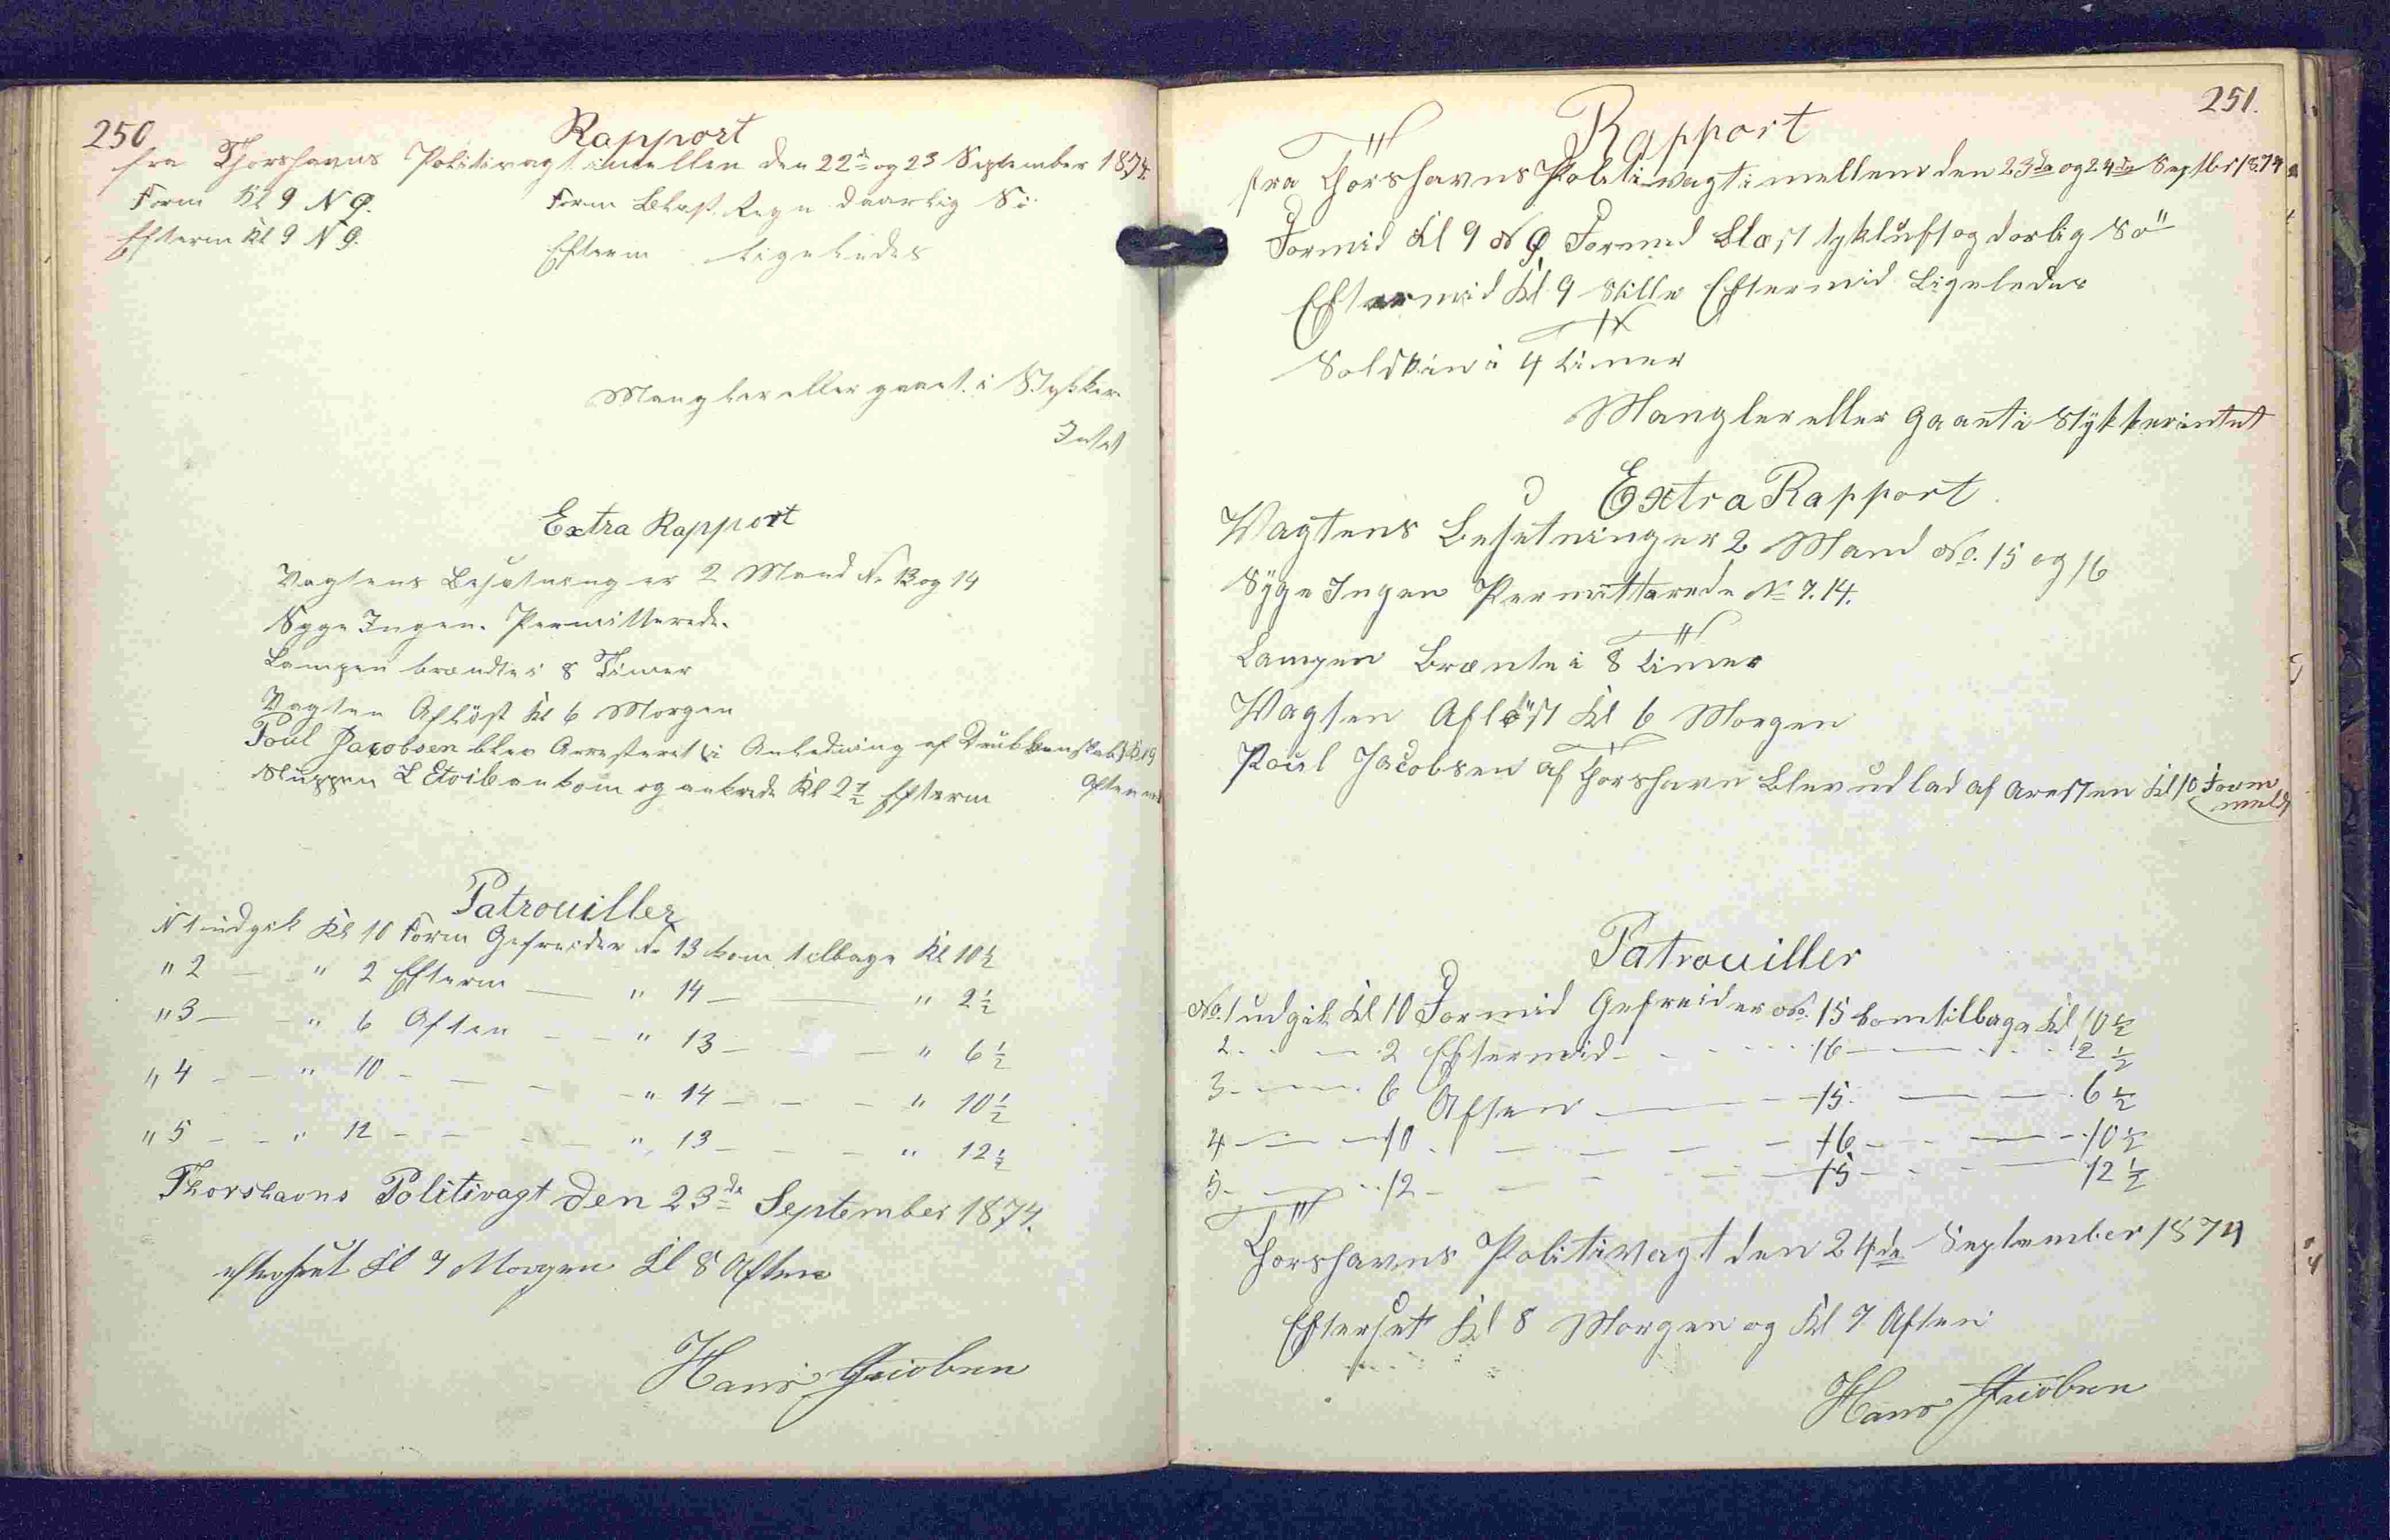 250
Rapport
fra Thorshavns Politivagt imellem den 22de og 23 September 1874.
Form Kl 9 NØ. Form Blæst Regn daarlig Sö
Efterm Kl 9 NØ. Efterm Ligeledes
Mangler eller gaaet i Stykker
Intet
Extra Rapport
Vagtens Besætning er 2 Mand No 13 og 14
Syge Ingen. Permitterede.
Lampen brændte i 8 Timer
Vagten Aflöst Kl 6 Morgen
Poul Jacobsen blev Arresteret i Anledning af Drukkenskab Kl 9
Aften
Sluppen L'Etoile ankom og ankrede Kl 2½ Efterm
Patrouiller
N 1 udgik Kl 10 Form Gefreider No 13 kom tilbage Kl 10½
" 2 — " 2 Efterm — " 14 — — " 2½
" 3 — — " 6 Aften — — " 13 — — — " 6½
" 4 — — " 10 — — — — " 14 — — — " 10½
" 5 — — " 12 — — — — " 13 — — — " 12½
Thorshavns Politivagt den 23de September 1874.
efterseet Kl 7 Morgen Kl 8 Aften
Hans Jacobsen
251.
Rapport
fra Thorshavns Politivagt imellem den 23de og 24de Septbr 1874
Formid Kl 9 NØ Formid Blæst tykluft og dorlig Sö
Eftermid Kl 9 Stille Eftermid Ligeledes
Solskin i 4 Timer
Mangler eller gaaet i Stykker intet
Extra Rapport
Vagtens Besetning er 2 Mand No. 15 og 16
Syge Ingen Permitterede No 7. 14.
Lampen Brænte i 8 Timer
Vagten Aflöst Kl 6 Morgen
Poul Jacobsen af Thorshavn Blev udlad af Aresten Kl 10 Form
Patrouiller
No. 1 udgik Kl 10 Formid Gefreider No. 15 kom tilbage Kl 10½
2 — — 2 Eftermid — — 16 — — 2½
3 — — 6 Aften — — 15 — — 6½
4 — — 10 — — — 16 — — 10½
5 — — 12 — — — 15 — — 12½
Thorshavns Politivagt den 24de September 1874
Efterset Kl 8 Morgen og Kl 7 Aften
Hans Jacobsen